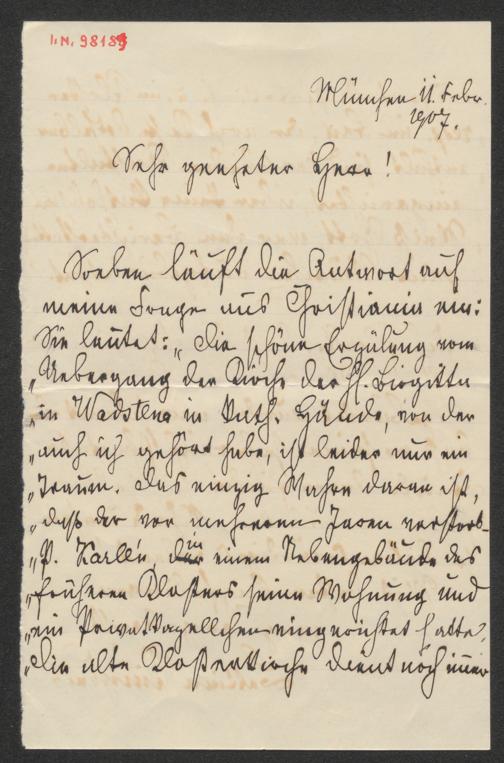 I.N. 98189
München 11. Febr.
1907.
Sehr geehrter Herr!
Soeben läuft die Antwort auf
meine Frage aus Christiania ein:
Sie lautet: „Die schöne Erzälung vom
„Uebergang der Kirche der hl. Birgitta
„in Wadstena in kath. Hände, von der
„auch ich gehört habe, ist leider nur ein
„Traum. Das einzig Wahre daran ist,
„daß der vor mehreren Jaren verstorb.
„P. Karlén, in einem Nebengebäude des
„früheren Klosters seine Wohnung und
„ein Privatkapellchen eingerichtet hatte.
„Die alte Klosterkirche dient noch immer